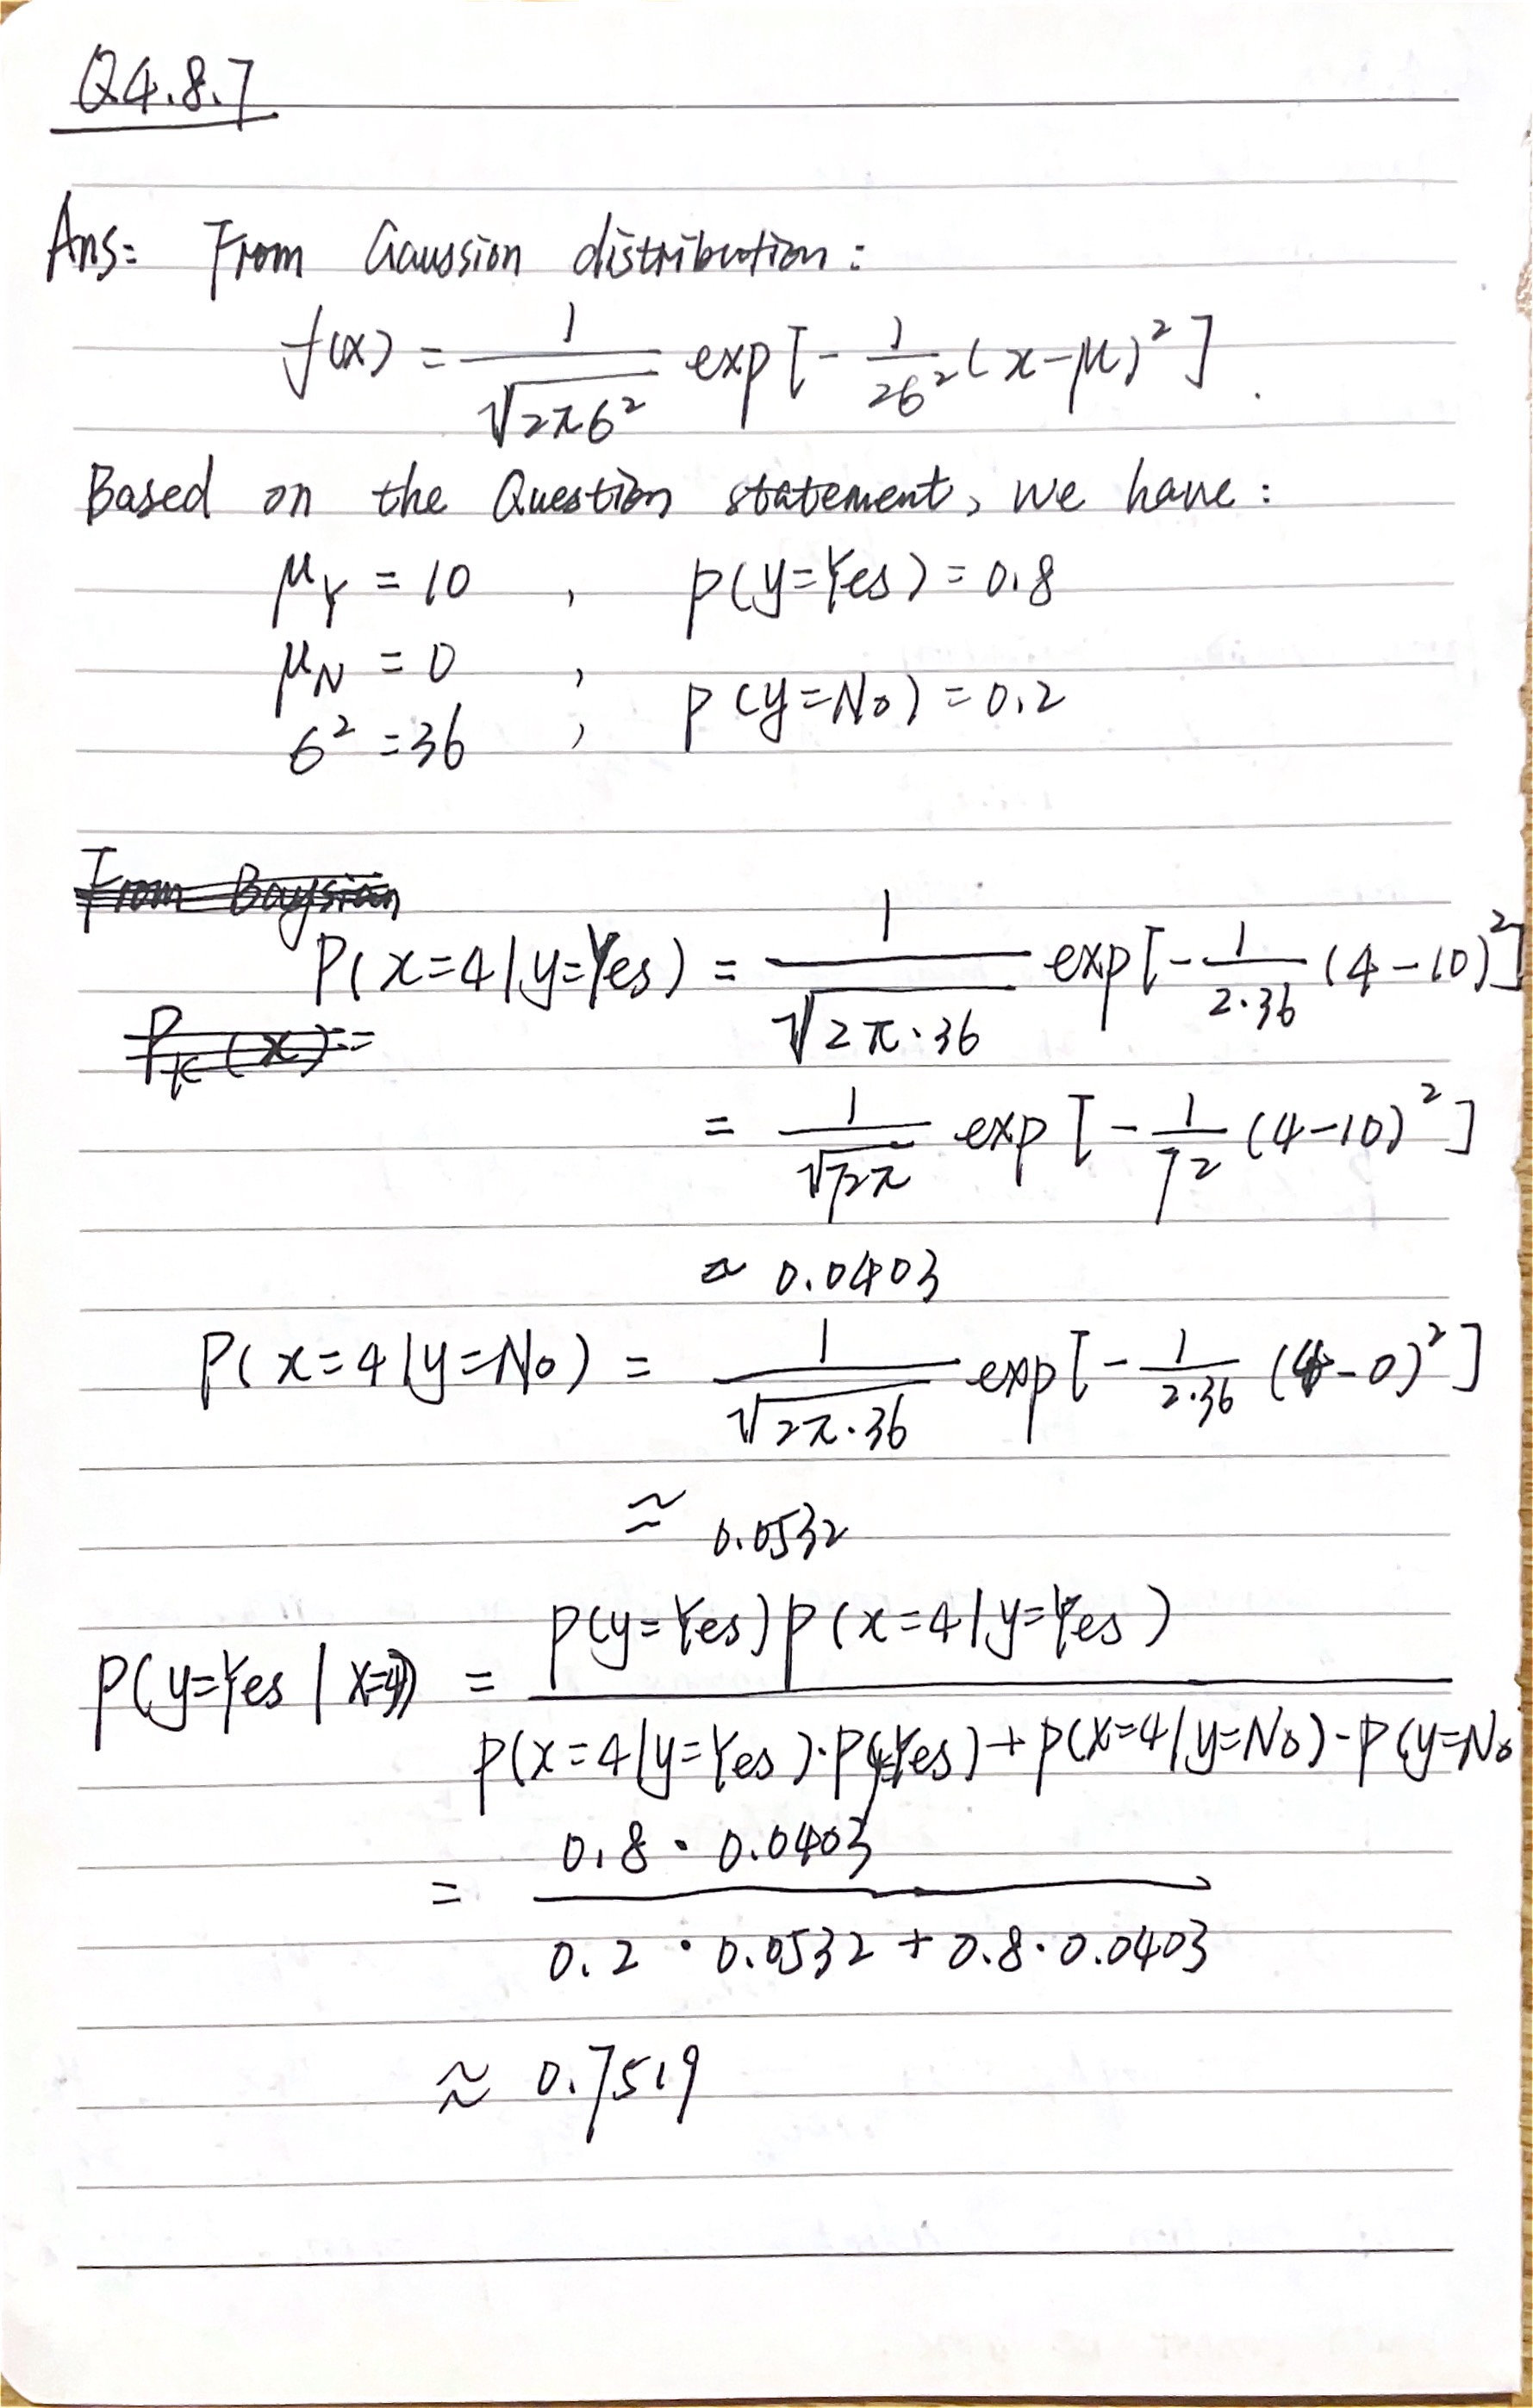 Q4.8.7
Ans: From Gaussion distribution:
f(x) = 1/√(2πσ²) exp[-1/2σ² (x-μ)²].
Based on the Question statement, we have:
μ_Y = 10 , p(y=Yes) = 0.8
μ_N = 0 ,
p(y=No) = 0.2
σ² = 36 ,
From Baysian
P(x=4|y=Yes) = 1/√(2π·36) exp[-1/2·36 (4-10)²]
P_k(x)=
= 1/√72π exp[-1/72 (4-10)²]
≈ 0.0403
P(x=4|y=No) = 1/√(2π·36) exp[-1/2·36 (4-0)²]
≈ 0.0532
P(y=Yes|x=4) = p(y=Yes)p(x=4|y=Yes) / p(x=4|y=Yes)·P(y=Yes)+p(x=4|y=No)-P(y=No
= 0.8 · 0.0403 / 0.2 · 0.0532 + 0.8 · 0.0403
≈ 0.7519